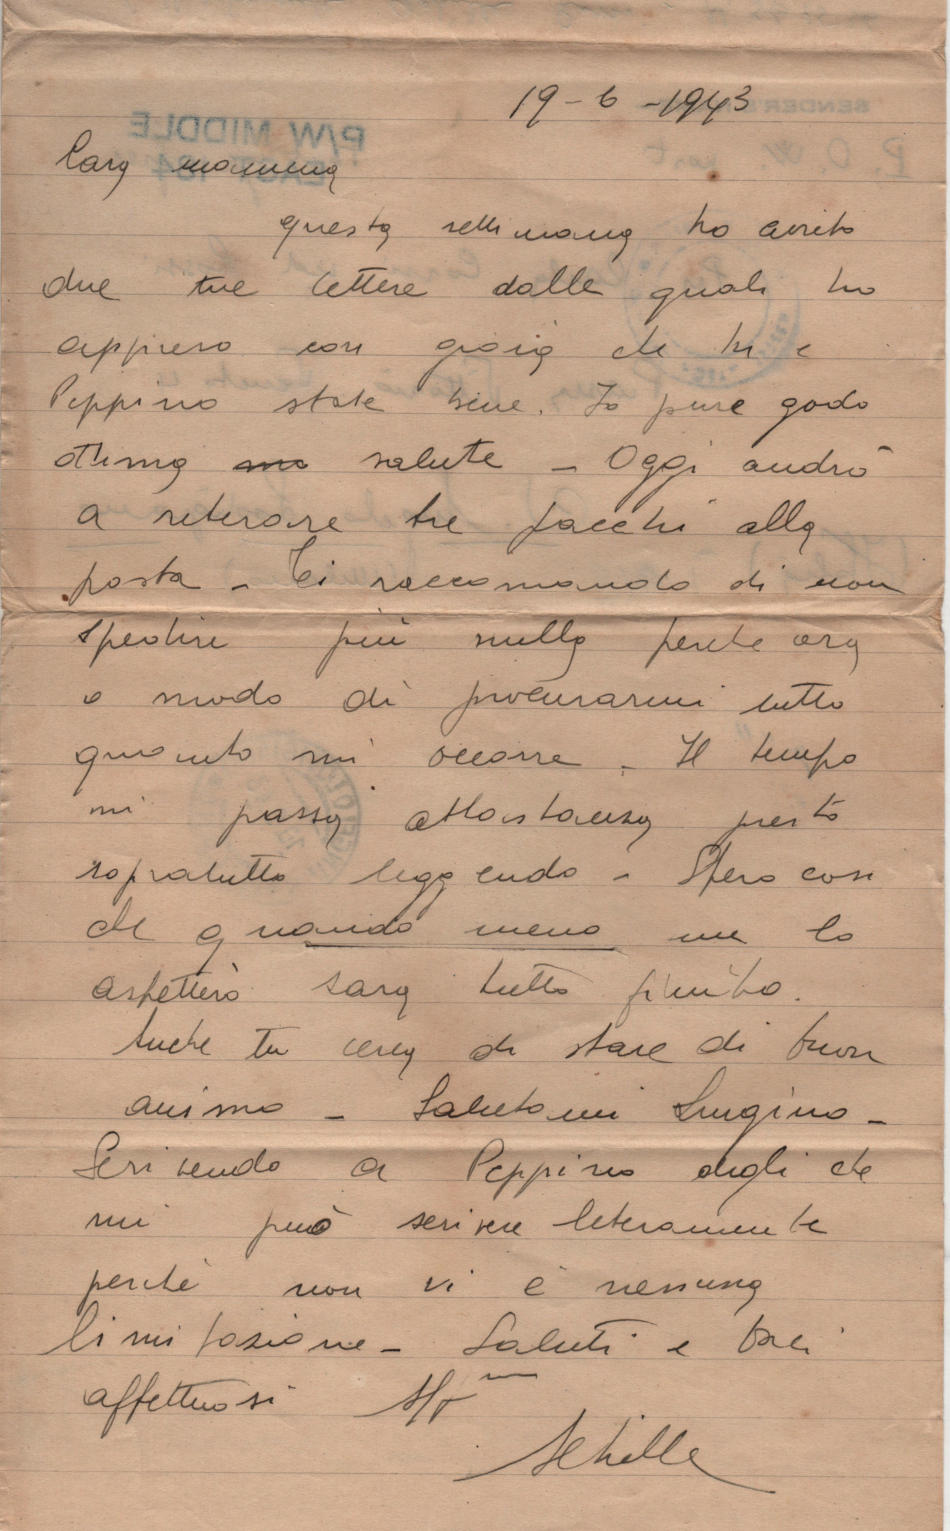 19-6-1943
Cara mamma
questa settimana ho avuto
due tue lettere dalle quali ho
appreso con gioia che tu e
Peppino state bene. Io pure godo
ottima salute - Oggi andrò
a reterare tre pacchi alla
posta - Ti raccomando di non
spedire più nulla perche ora
o modo di procurarmi tutto
quanto mi occorre - Il tempo
mi passa abbastanza presto
sopratutto leggendo - Spero così
che quando meno me lo
aspetterò sarà tutto finito.
Anche tu cerca di stare di buon
animo - Salutami Luigino -
Scrivendo a Peppino digli che
mi può scrivere liberamente
perchè non vi è nessuna
limitazione - Saluti e baci
affettuosi
Achille
P/W MIDDLE
EAST
SENDER'S
P.O.W. post